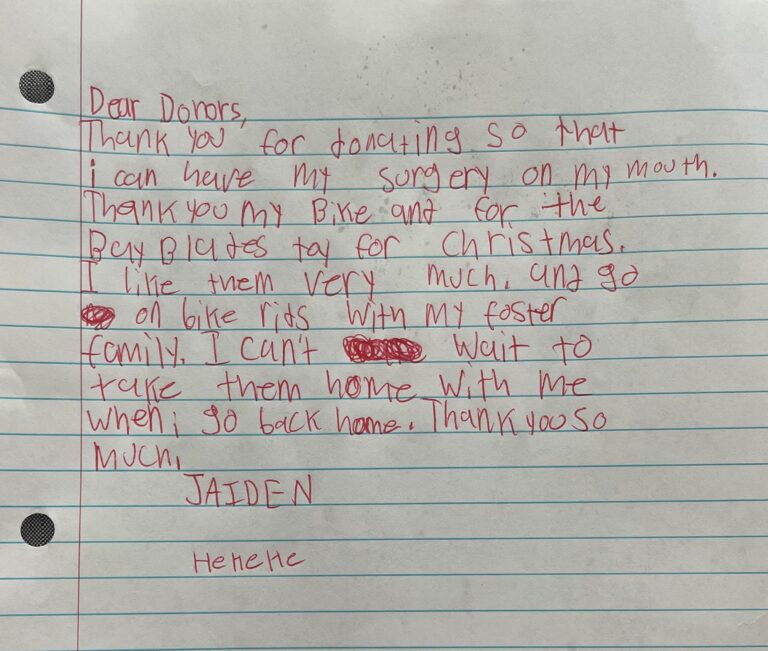 Dear Donors,
Thank you for donating so that
i can have my surgery on my mouth.
Thank you my Bike and for the
Bay Blades toy for Christmas.
I like them very much. and go
on bike rids with my foster
family. I can't wait to
take them home with me
when i go back home. Thank you so
much,
JAIDEN
HeHeHe